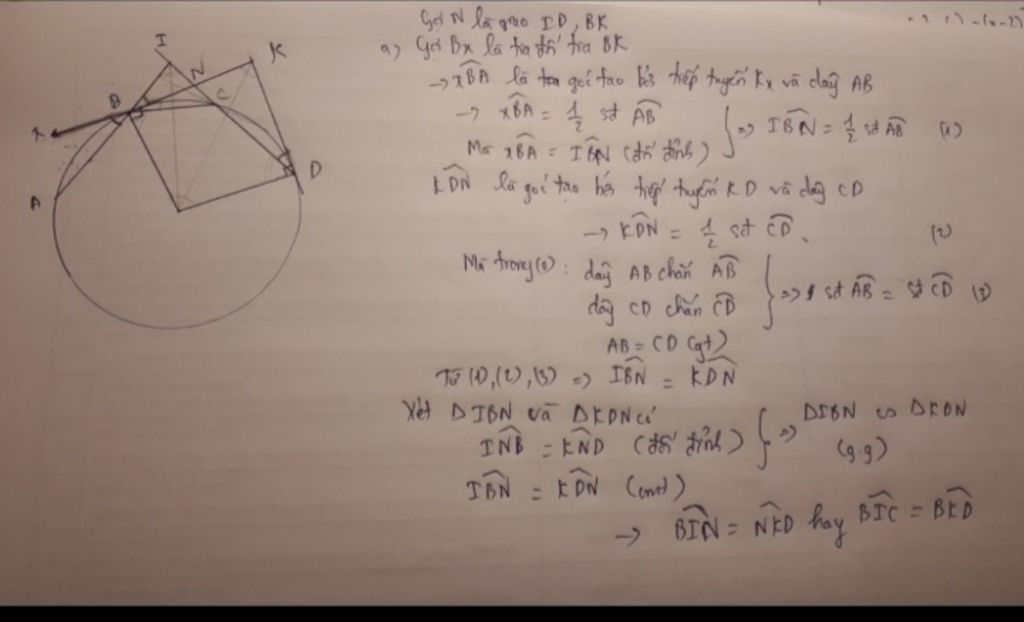 Gọi N là giao ID, BK
a) Gọi Bx là tia đối tia BK
→ xBA là góc tạo bởi tiếp tuyến Kx và dây AB
→ xBA = 1/2 sđ AB
Mà xBA = IBN (đối đỉnh)
} => IBN = 1/2 sđ AB (1)
KDN là góc tạo bởi tiếp tuyến KD và dây CD
→ KDN = 1/2 sđ CD. (2)
Mà trong (o): dây AB chắn AB
dây CD chắn CD
AB = CD (gt)
} => sđ AB = sđ CD (3)
Từ (1), (2), (3) => IBN = KDN
Xét ΔIBN và ΔKDN có
INB = KND (đối đỉnh)
IBN = KDN (cmt)
} => ΔIBN ∽ ΔKDN
(g.g)
→ BIN = NKD hay BIC = BKD
I
N
K
B
C
x
A
D